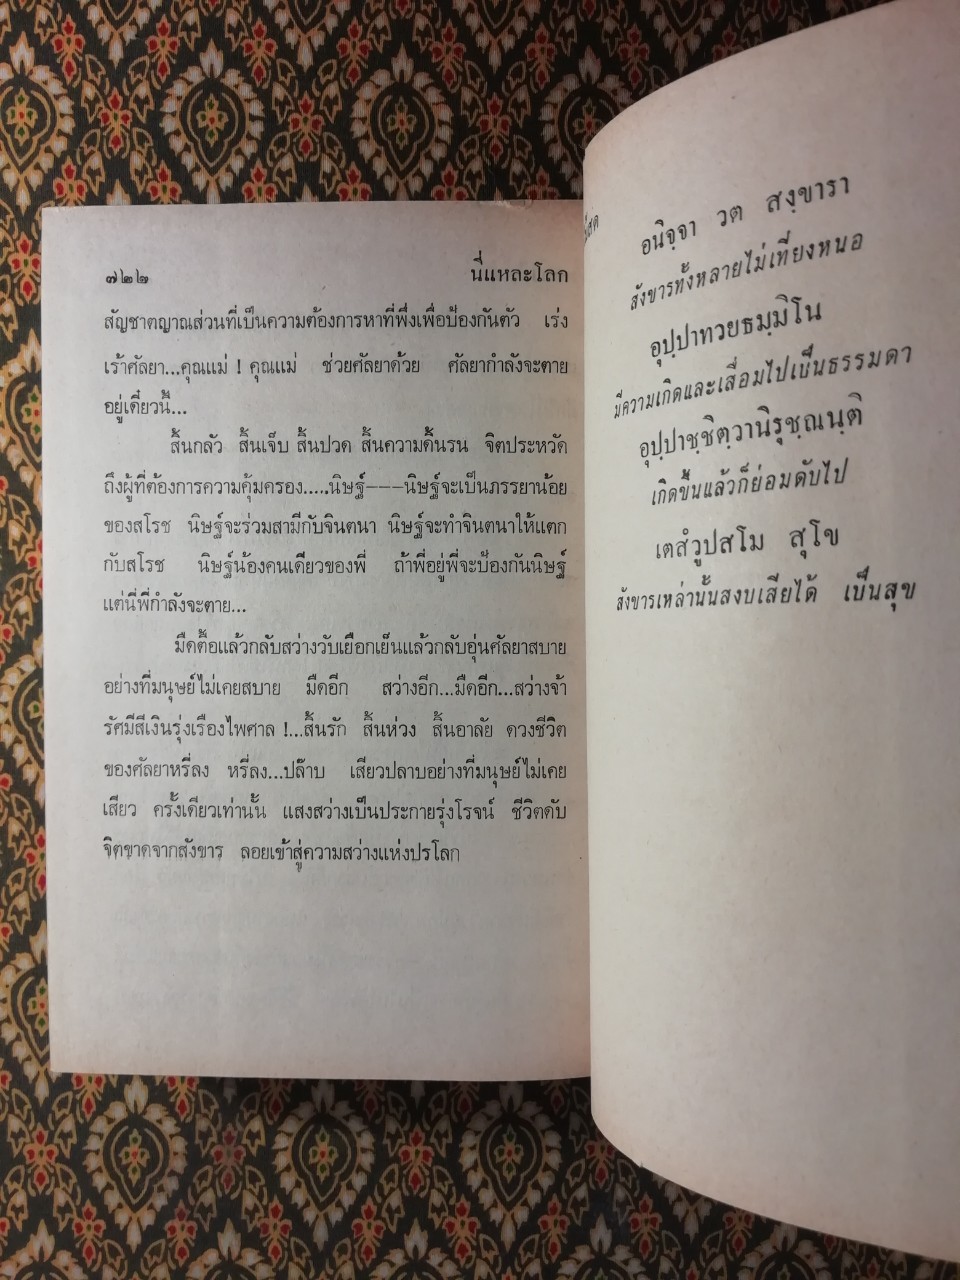 ๗๒๒ นี่แหละโลก
สัญชาตญาณส่วนที่เป็นความต้องการหาที่พึ่งเพื่อป้องกันตัว เร่ง
เร้าศัลยา...คุณแม่ ! คุณแม่ ช่วยศัลยาด้วย ศัลยากำลังจะตาย
อยู่เดี๋ยวนี้...
สิ้นกลัว สิ้นเจ็บ สิ้นปวด สิ้นความดิ้นรน จิตประหวัด
ถึงผู้ที่ต้องการความคุ้มครอง.....นิษฐ์---นิษฐ์จะเป็นภรรยาน้อย
ของสโรช นิษฐ์จะร่วมสามีกับจินตนา นิษฐ์จะทำจินตนาให้แตก
กับสโรช นิษฐ์น้องคนเดียวของพี่ ถ้าพี่อยู่พี่จะป้องกันนิษฐ์
แต่นี่พี่กำลังจะตาย...
มืดตื้อแล้วกลับสว่างวับเยือกเย็นแล้วกลับอุ่นศัลยาสบาย
อย่างที่มนุษย์ไม่เคยสบาย มืดอีก สว่างอีก...มืดอีก...สว่างจ้า
รัศมีสีเงินรุ่งเรืองไพศาล !...สิ้นรัก สิ้นห่วง สิ้นอาลัย ดวงชีวิต
ของศัลยาหรี่ลง หรี่ลง...ปล๊าบ เสียวปลาบอย่างที่มนุษย์ไม่เคย
เสียว ครั้งเดียวเท่านั้น แสงสว่างเป็นประกายรุ่งโรจน์ ชีวิตดับ
จิตขาดจากสังขาร ลอยเข้าสู่ความสว่างแห่งปรโลก
อนิจฺจา วต สงฺขารา
สังขารทั้งหลายไม่เที่ยงหนอ
อุปฺปาทวยธมฺมิโน
มีความเกิดและเสื่อมไปเป็นธรรมดา
อุปฺปาชฺชิตฺวานิรุชฺฌนฺติ
เกิดขึ้นแล้วก็ย่อมดับไป
เตสํวูปสโม สุโข
สังขารเหล่านั้นสงบเสียได้ เป็นสุข